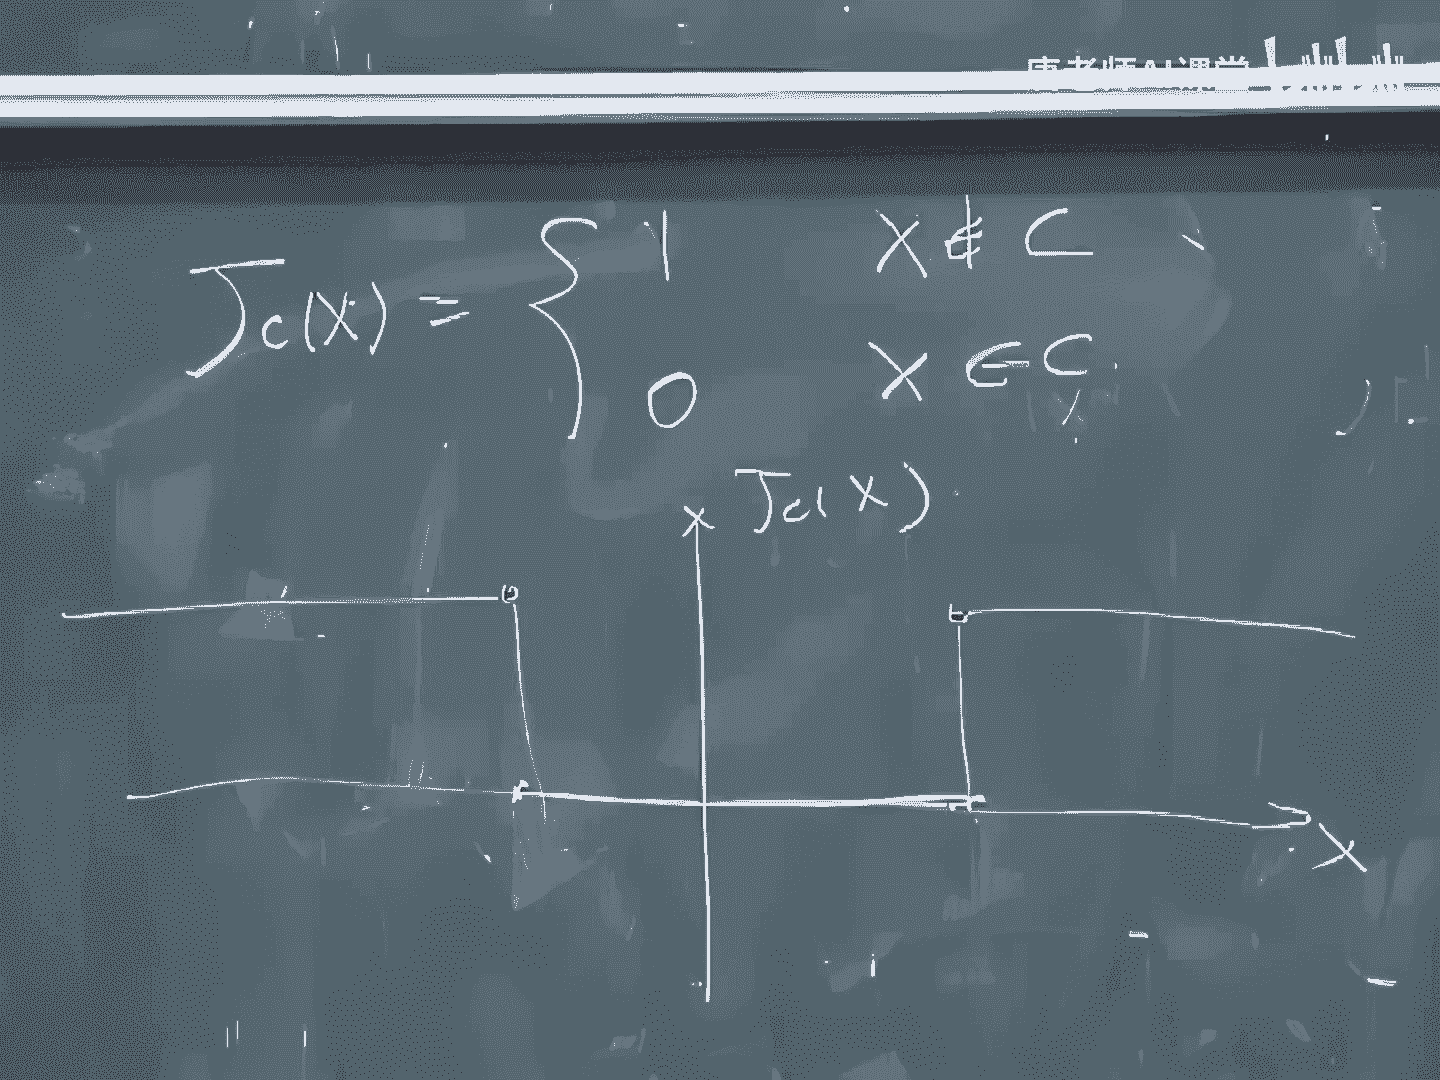 唐老师AI课堂
J_C(X) = { 1 X ∉ C
0 X ∈ C
J_C(X)
X